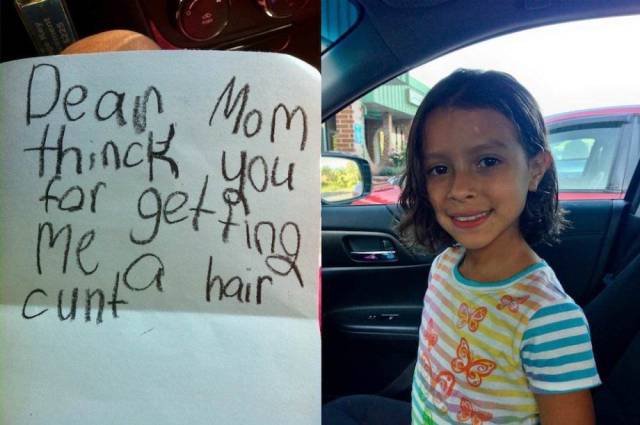 Dear Mom
thinck you
for getting
me a hair
cunt